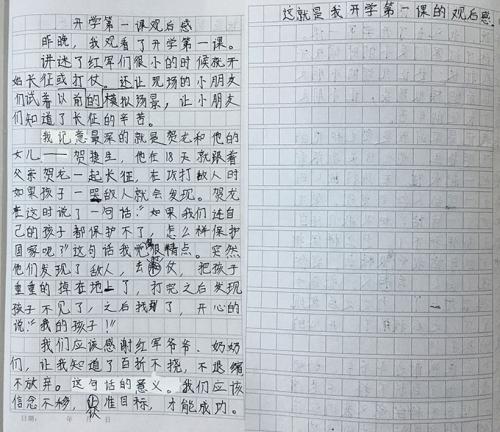 开学第一课观后感
昨晚，我观看了开学第一课。
讲述了红军们很小的时候就开
始长征或打仗。还让现场的小朋友
们试着以前的模拟场景，让小朋友
们知道了长征的辛苦。
我记意最深的就是贺龙和他的
女儿——贺捷生，他在18天就跟着
父亲贺龙一起长征。在攻打敌人时
如果孩子一哭敌人就会发现。贺龙
在这时说了一句话：“如果我们连自
己的孩子都保护不了，怎么样保护
国家呢？”这句话我觉得很精点。突然
他们发现了敌人，去打仗，把孩子
重重的掉在地上了，打完之后发现
孩子不见了，之后找到了，开心的
说：“我的孩子！”
我们应该感谢红军爷爷、奶奶
们，让我知道了百折不挠，不退缩
不放弃。这句话的意义。我们应该
信念不移，认准目标，才能成功。
日期： 年 月 日
这就是我开学第一课的观后感。